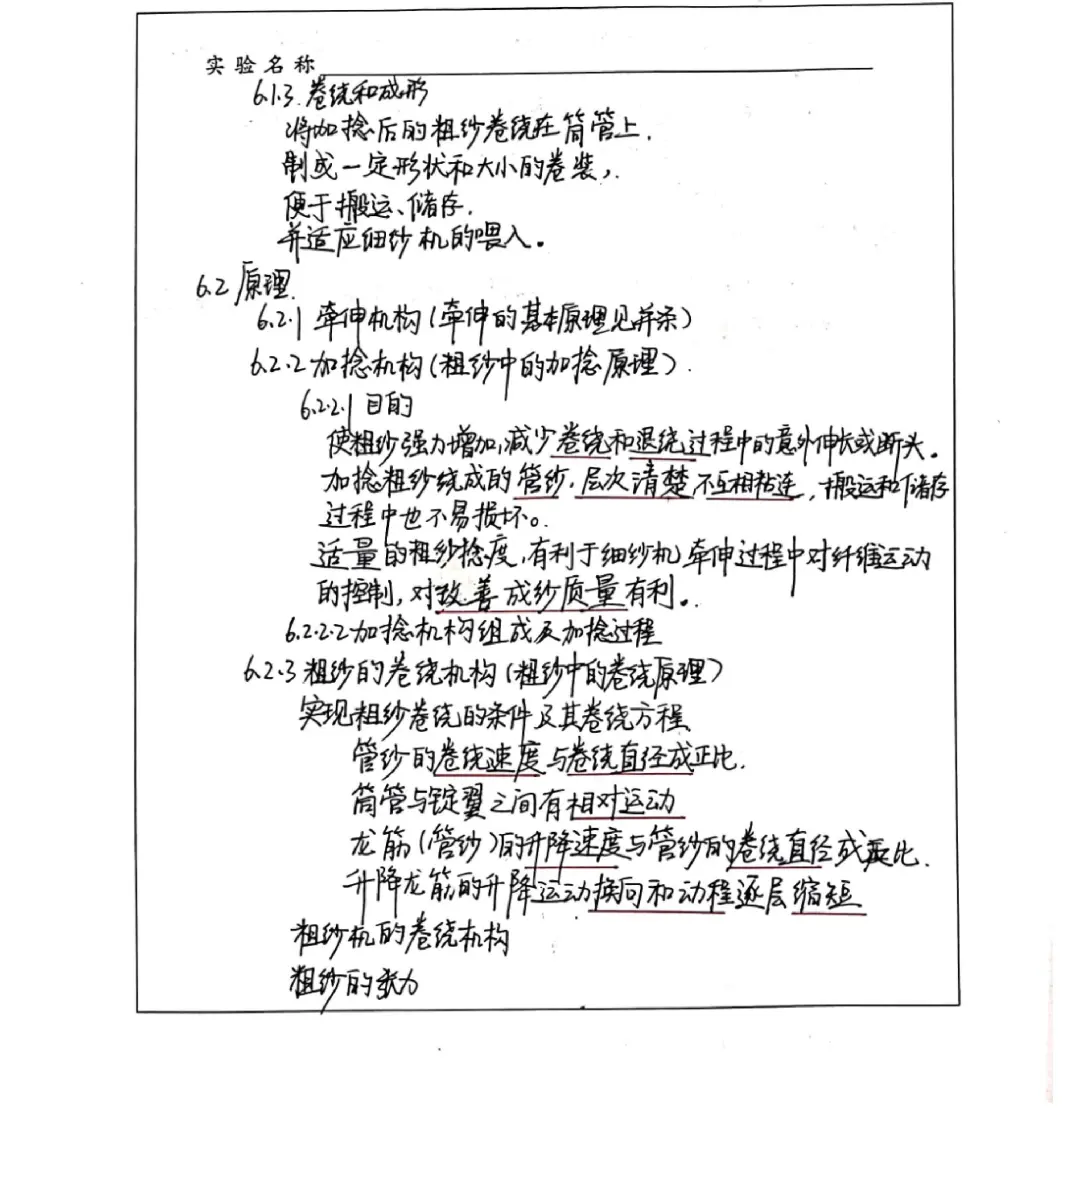 实验名称
6.1.3 卷绕和成形
将加捻后的粗纱卷绕在筒管上.
制成一定形状和大小的卷装,
便于搬运、储存.
并适应细纱机的喂入。
6.2 原理.
6.2.1 牵伸机构(牵伸的基本原理见并条)
6.2.2 加捻机构(粗纱中的加捻原理).
6.2.2.1 目的
使粗纱强力增加,减少卷绕和退绕过程中的意外伸长或断头。
加捻粗纱绕成的管纱,层次清楚,不互相粘连,搬运和储存
过程中也不易损坏。
适量的粗纱捻度,有利于细纱机牵伸过程中对纤维运动
的控制,对改善成纱质量有利。
6.2.2.2 加捻机构组成及加捻过程
6.2.3 粗纱的卷绕机构(粗纱中的卷绕原理)
实现粗纱卷绕的条件及其卷绕方程
管纱的卷绕速度与卷绕直径成正比.
筒管与锭翼之间有相对运动
龙筋(管纱)的升降速度与管纱的卷绕直径成反比.
升降龙筋的升降运动换向和动程逐层缩短
粗纱机的卷绕机构
粗纱的张力